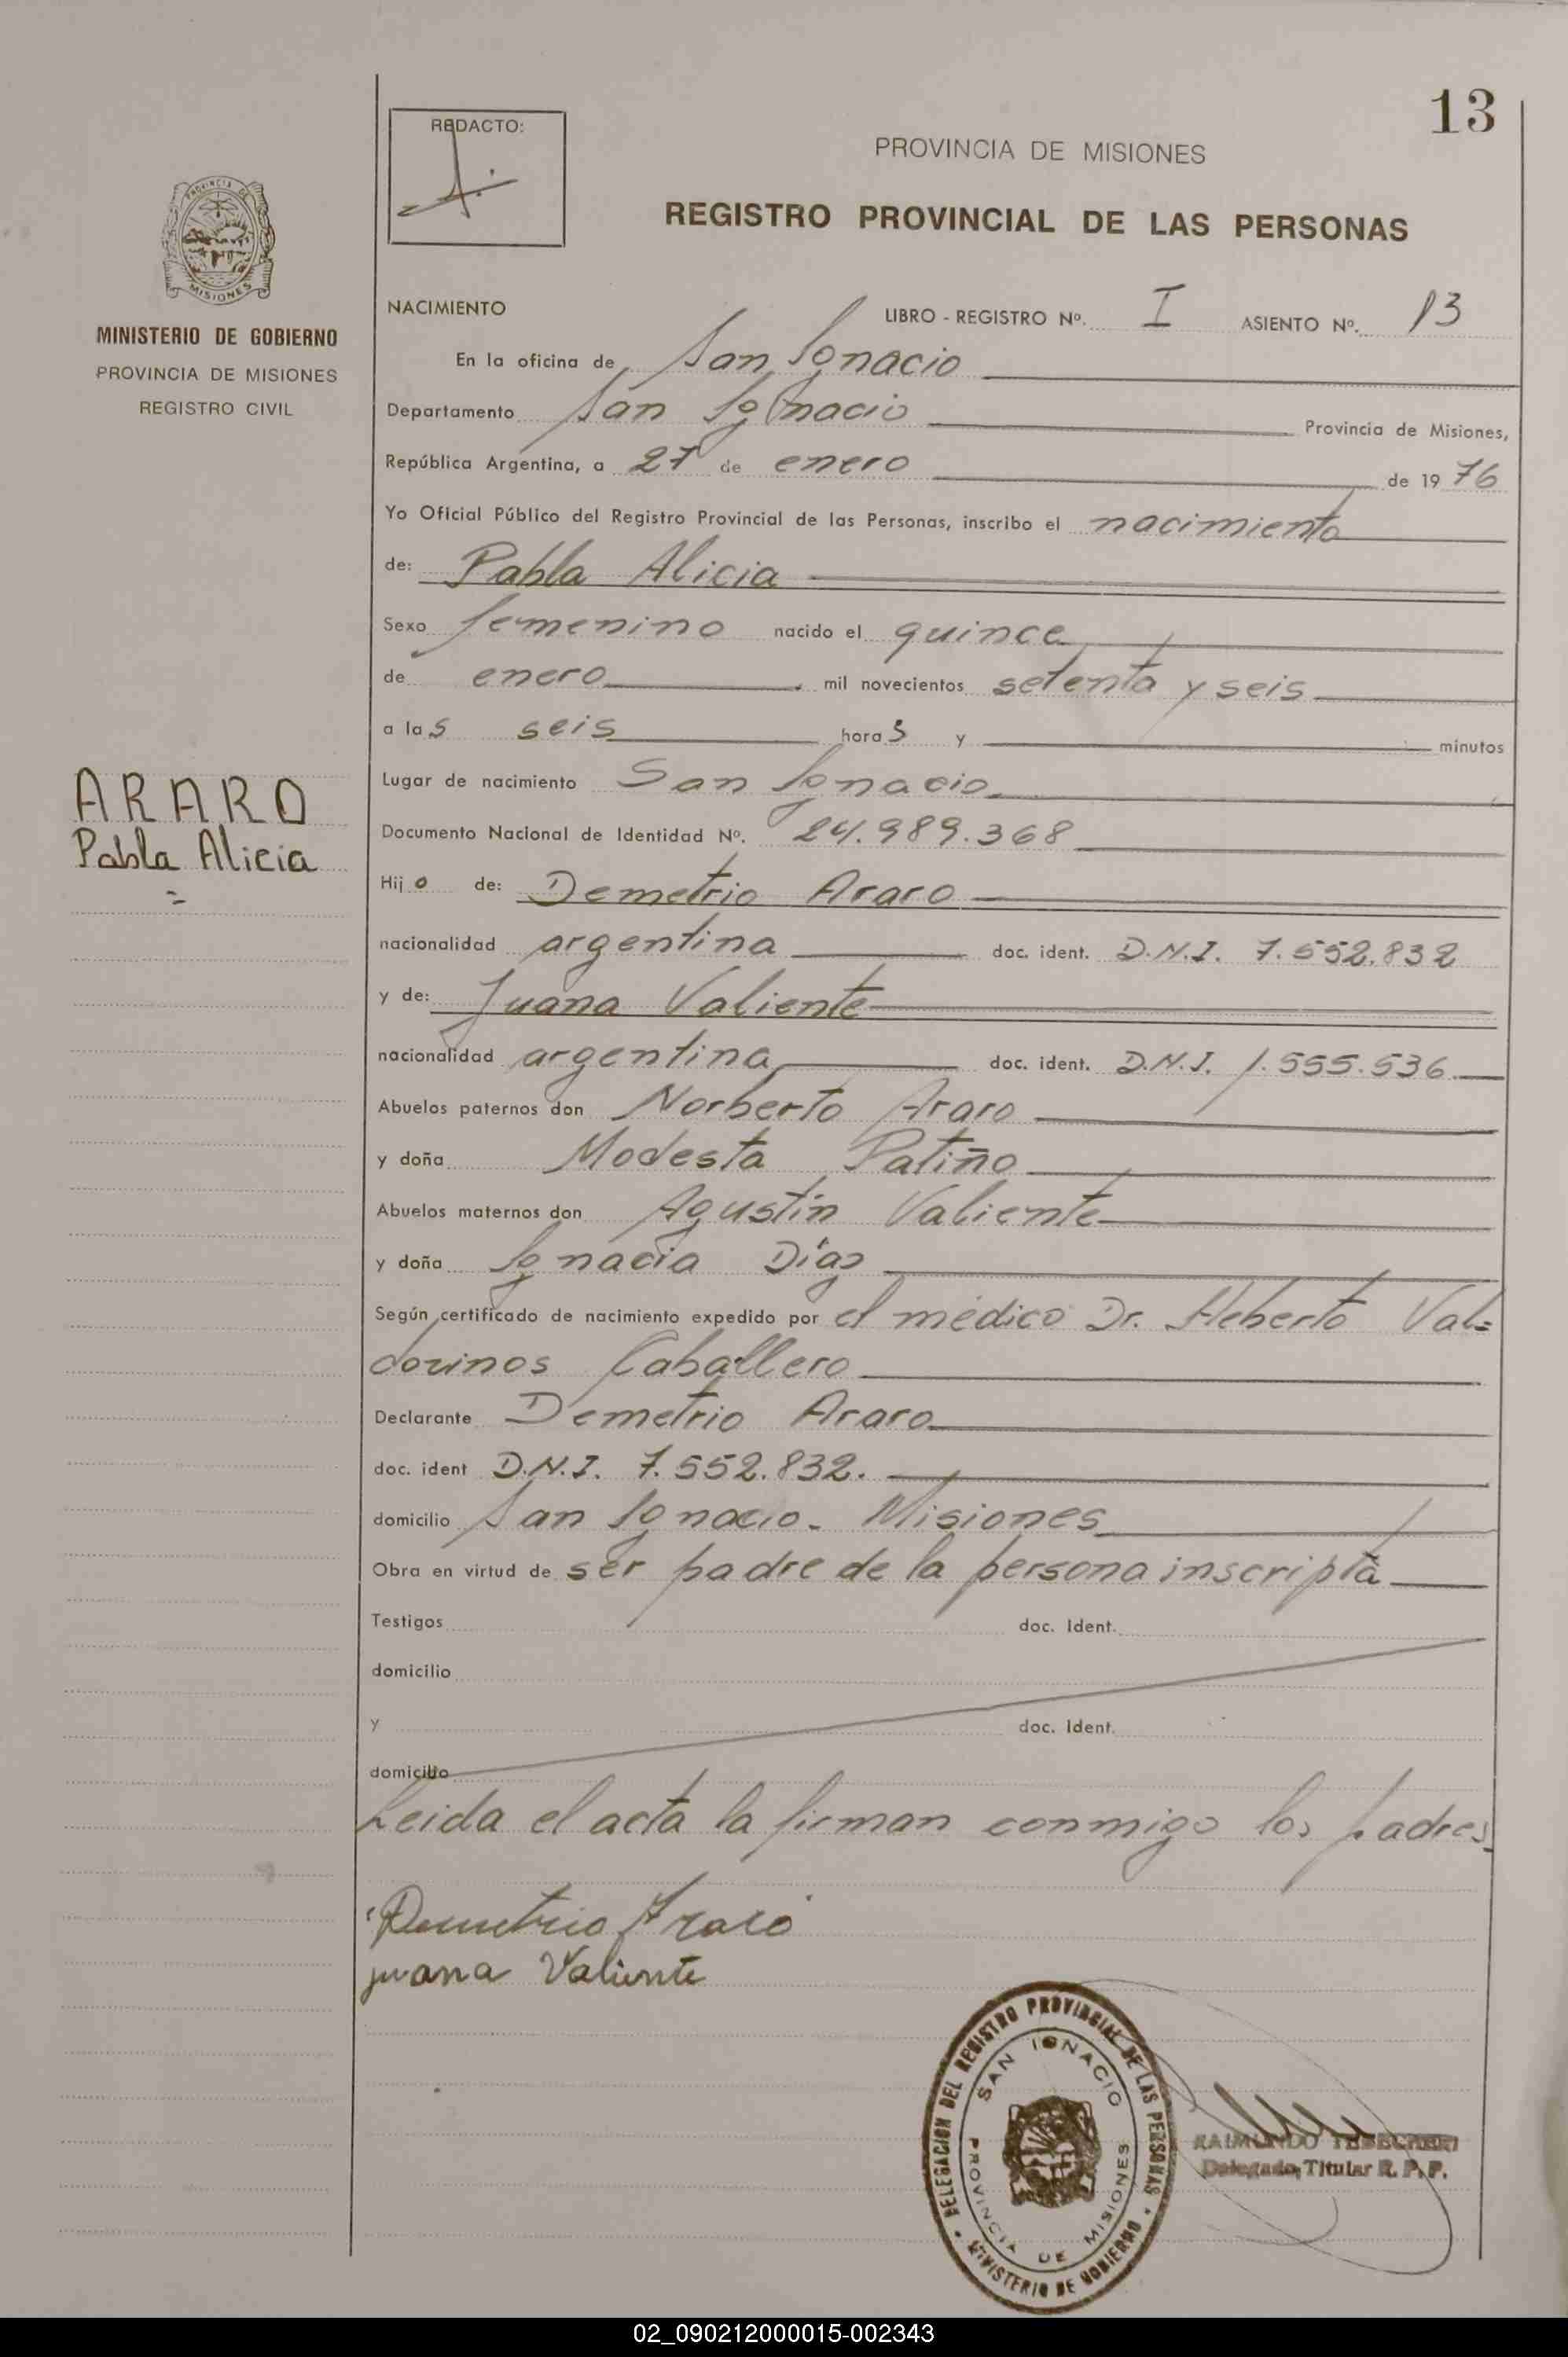 13
REDACTO:
PROVINCIA DE MISIONES
REGISTRO PROVINCIAL DE LAS PERSONAS
PROVINCIA DE
MISIONES
MINISTERIO DE GOBIERNO
PROVINCIA DE MISIONES
REGISTRO CIVIL
NACIMIENTO LIBRO - REGISTRO Nº. I ASIENTO Nº. 13
En la oficina de San Ignacio
Departamento San Ignacio Provincia de Misiones,
República Argentina, a 27 de enero de 1976
Yo Oficial Público del Registro Provincial de las Personas, inscribo el nacimiento
de: Pabla Alicia
Sexo femenino nacido el quince
de enero mil novecientos setenta y seis
a las seis horas y minutos
ARARO
Pabla Alicia
Lugar de nacimiento San Ignacio
Documento Nacional de Identidad Nº. 24.989.368
Hijo de: Demetrio Araro
nacionalidad argentina doc. ident. D.N.I. 7.552.832
y de: Juana Valiente
nacionalidad argentina doc. ident. D.N.I. 1.555.536
Abuelos paternos don Norberto Araro
y doña Modesta Patiño
Abuelos maternos don Agustín Valiente
y doña Ignacia Díaz
Según certificado de nacimiento expedido por el médico Dr. Heberto Val=
dovinos Caballero
Declarante Demetrio Araro
doc. ident D.N.I. 7.552.832.
domicilio San Ignacio - Misiones
Obra en virtud de ser padre de la persona inscripta
Testigos doc. Ident.
domicilio
y doc. Ident.
domicilio
Leida el acta la firman conmigo los padres
Demetrio Araro
juana Valiente
DELEGACION DEL REGISTRO PROVINCIAL DE LAS PERSONAS
SAN IGNACIO
PROVINCIA DE MISIONES
MINISTERIO DE GOBIERNO
RAIMUNDO
Delegado Titular R. P. P.
02_090212000015-002343